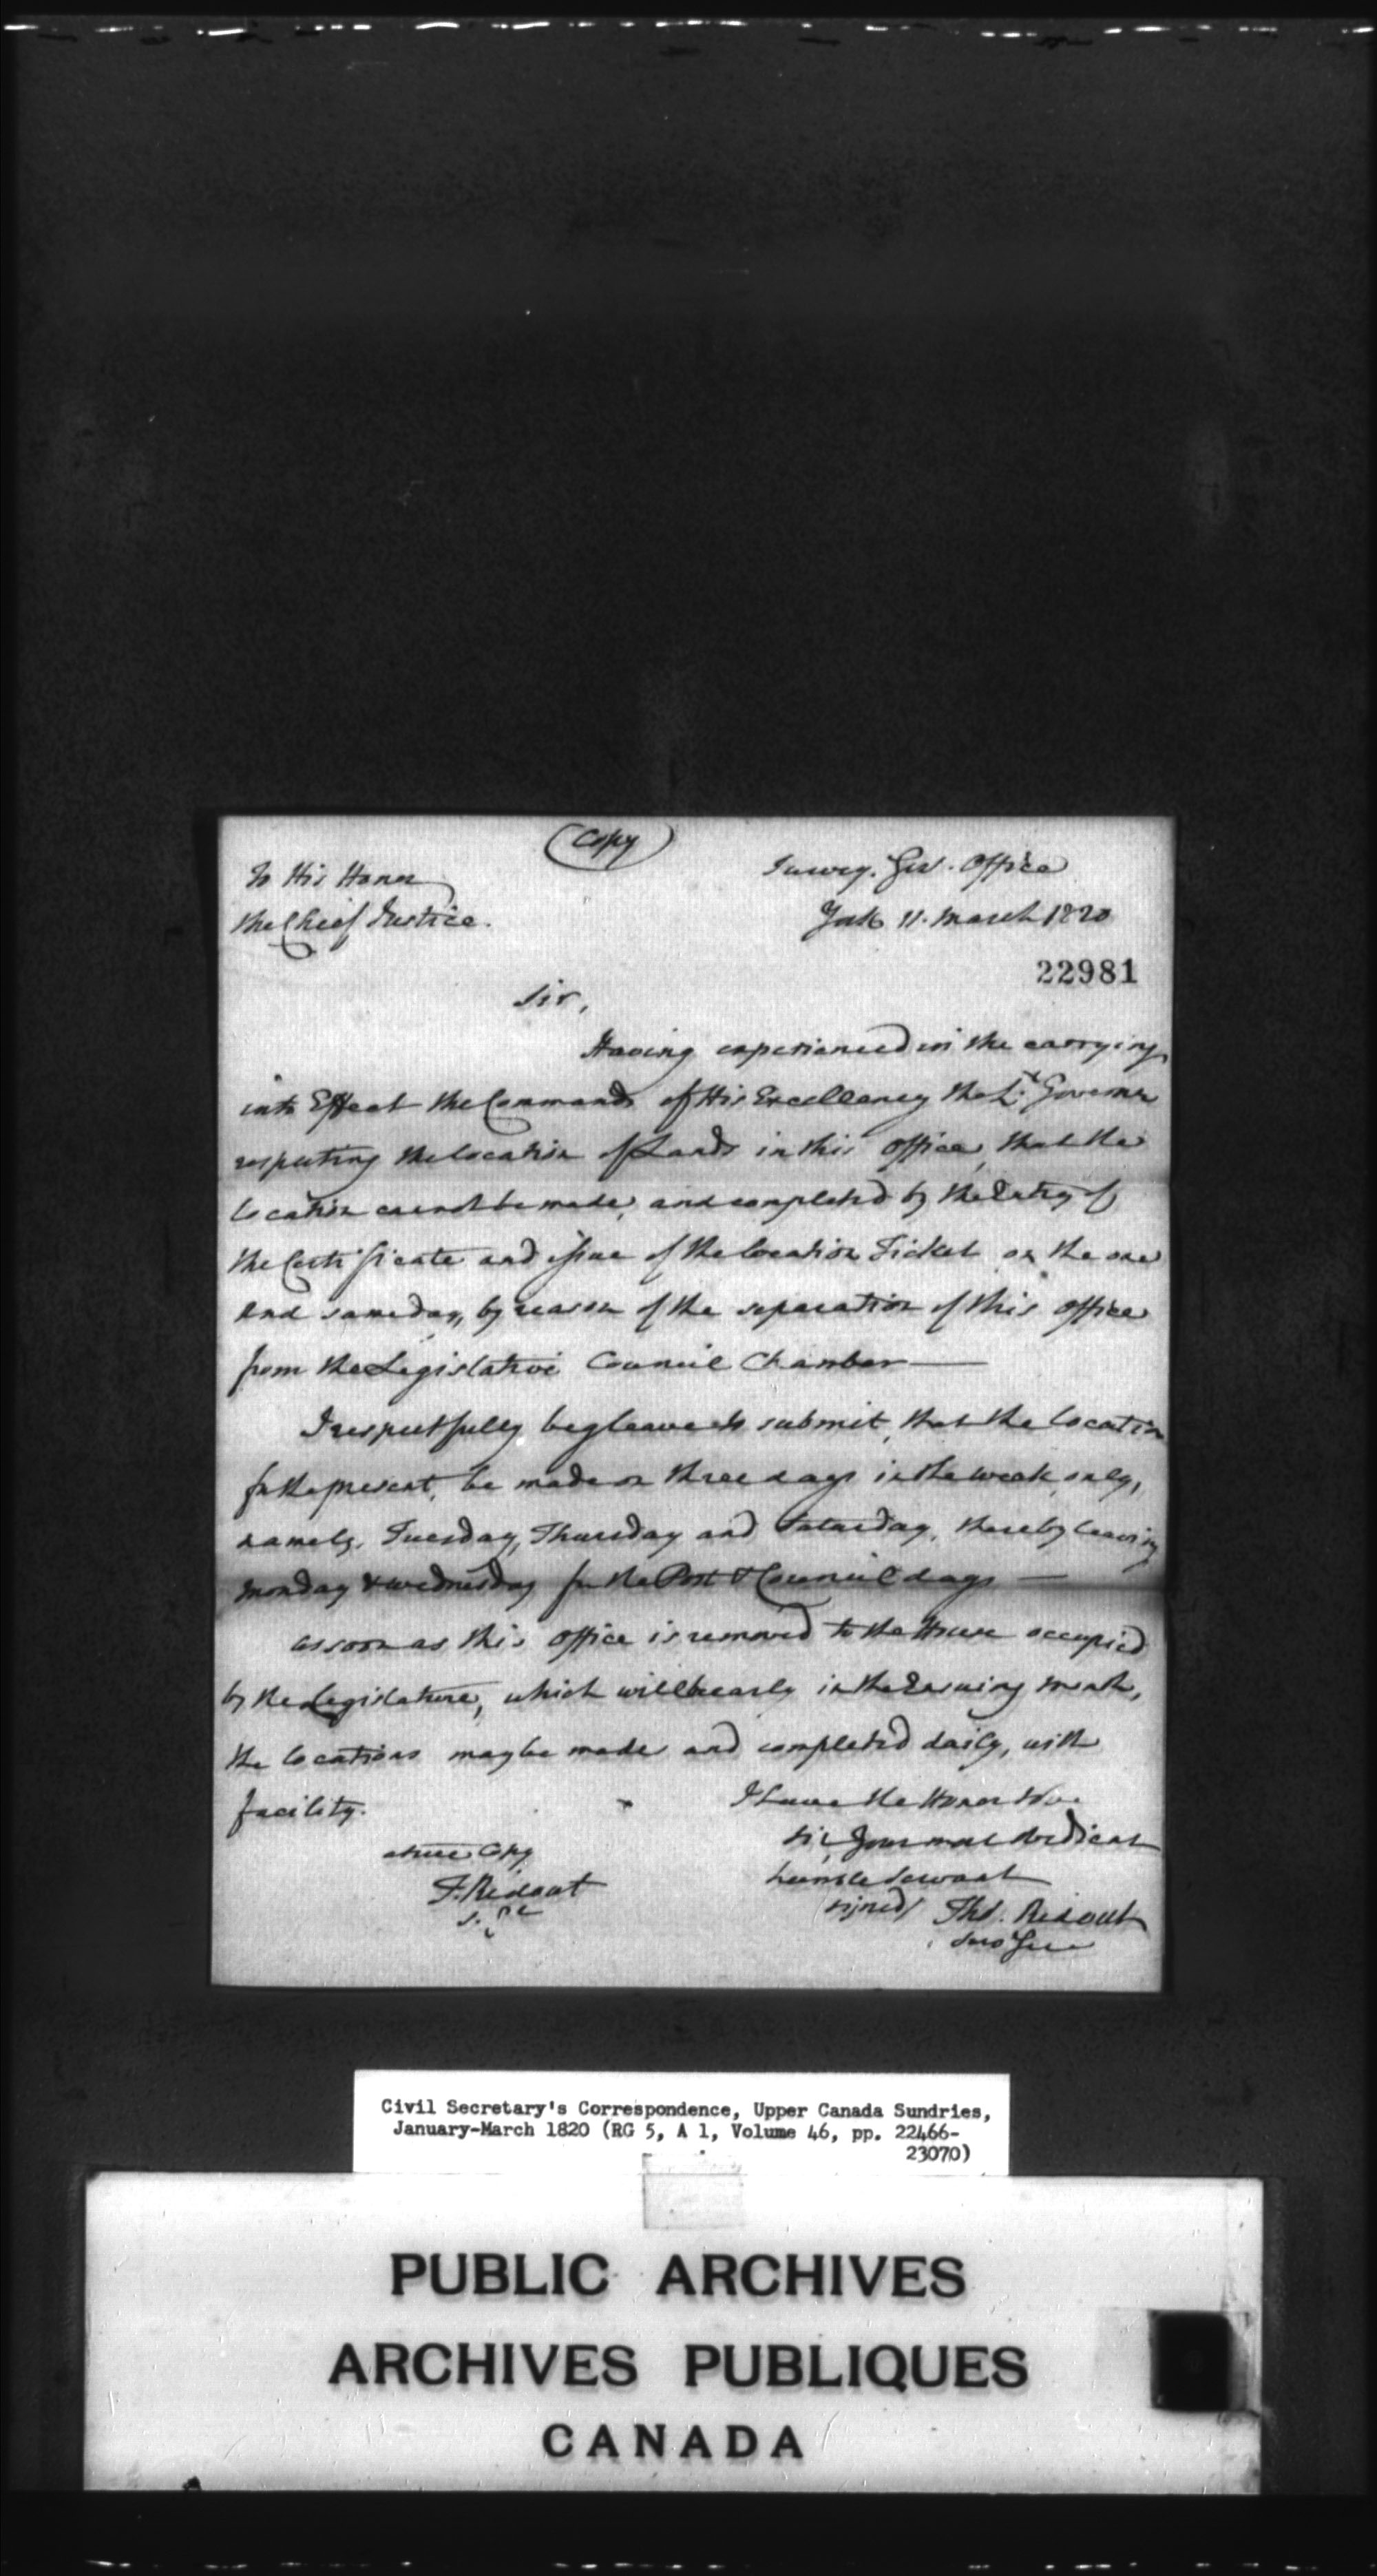 (Copy)
To His Honor
the Chief Justice.
Survey. Gen. Office
York 11. March 1820
22981
Sir,
Having experienced in the carrying
into Effect the Commands of His Excellency the Lt. Governor
respecting the location of Lands in this office, that the
location cannot be made, and completed by the Entry of
the Certificate and issue of the location Ticket on the one
and same day, by reason of the separation of this office
from the Legislative Council Chamber —
I respectfully beg leave to submit, that the location
for the present, be made on three days in the week only,
namely, Tuesday, Thursday and Saturday, thereby leaving
Monday & Wednesday for the Post & Council days —
as soon as this office is removed to the House occupied
by the Legislature, which will be early in the Ensuing month,
the locations may be made and completed daily, with
facility.
I have the Honor to be
Sir, Your most obedient
humble Servant
(signed) Thos. Ridout
Surv Gen
a true Copy
T. Ridout
Civil Secretary's Correspondence, Upper Canada Sundries,
January-March 1820 (RG 5, A 1, Volume 46, pp. 22466-
23070)
PUBLIC ARCHIVES
ARCHIVES PUBLIQUES
CANADA